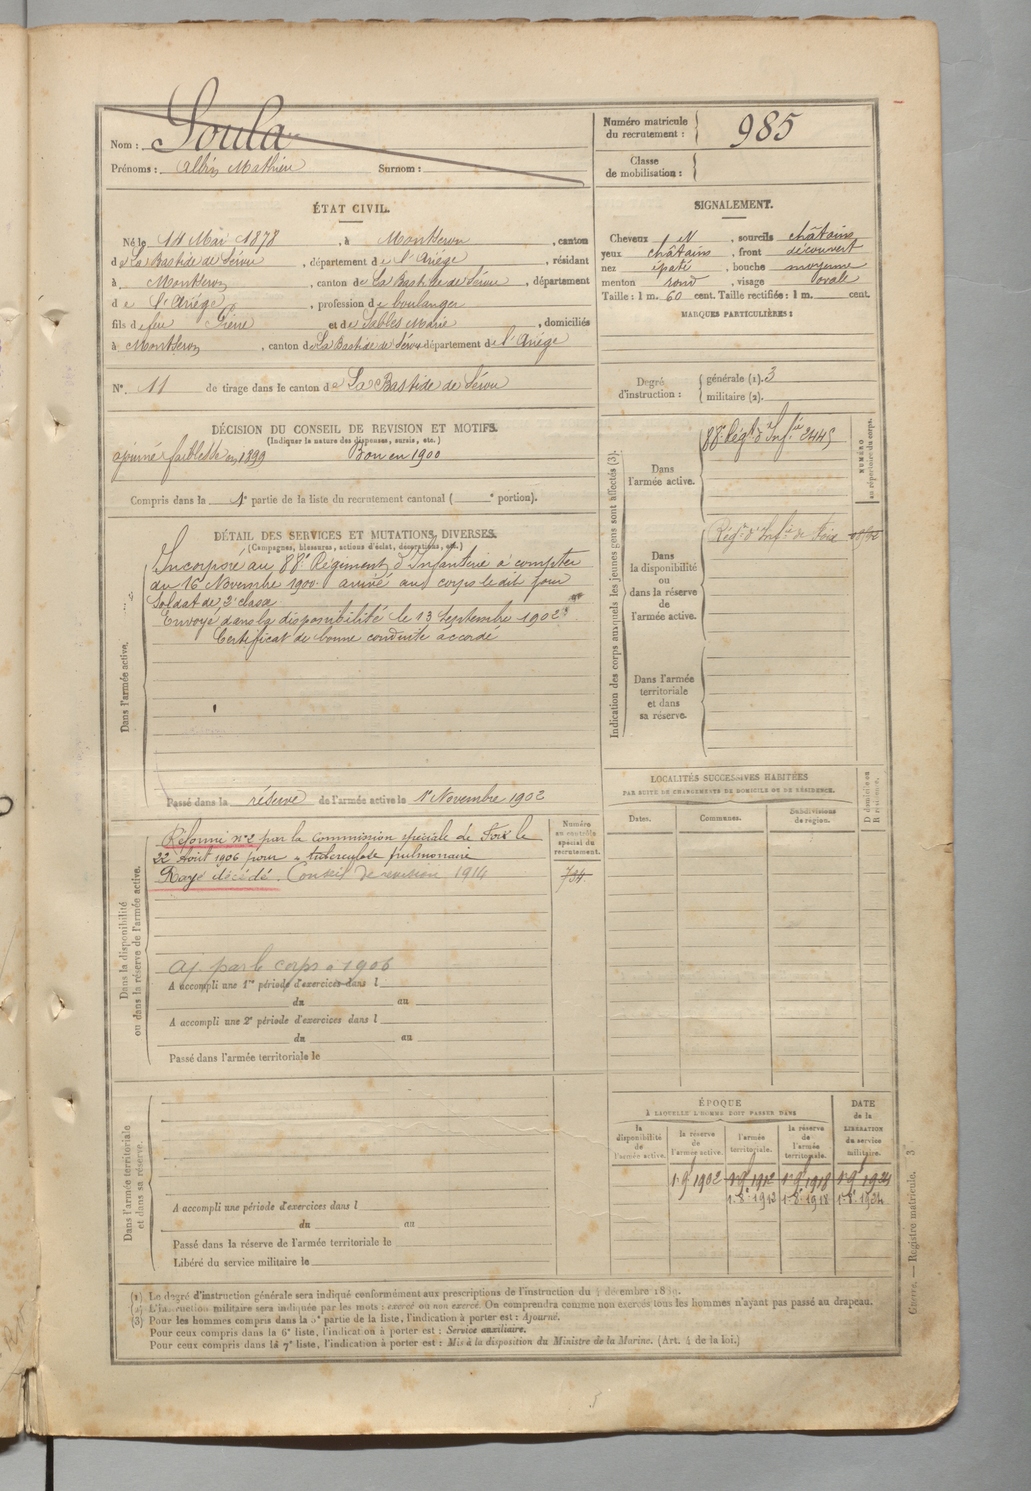 Nom : Soula
Prénoms : Albin Mathieu Surnom :
Numéro matricule du recrutement : 985
Classe de mobilisation :
ÉTAT CIVIL.
Né le 14 Mai 1878, à Montseron, canton
de La Bastide de Sérou, département de l'Ariège, résidant
à Montseron, canton de La Bastide de Sérou, département
de l'Ariège, profession de boulanger
fils de feu Pierre et de Sables Marie, domiciliés
à Montseron, canton de La Bastide de Sérou département de l'Ariège
N° 11 de tirage dans le canton de La Bastide de Sérou
SIGNALEMENT.
Cheveux N, sourcils châtains
yeux châtains, front découvert
nez épaté, bouche moyenne
menton rond, visage ovale
Taille : 1 m. 60 cent. Taille rectifiée : 1 m. cent.
MARQUES PARTICULIÈRES :
Degré d'instruction : générale (1). 3
militaire (2).
DÉCISION DU CONSEIL DE REVISION ET MOTIFS.
(Indiquer la nature des dispenses, sursis, etc.)
ajourné faiblesse en 1899 Bon en 1900
Compris dans la 1e partie de la liste du recrutement cantonal ( e portion).
DÉTAIL DES SERVICES ET MUTATIONS DIVERSES.
(Campagnes, blessures, actions d'éclat, décorations, etc.)
Dans l'armée active.
Incorporé au 88e Régiment d'Infanterie à compter
du 16 Novembre 1900. arrivé au corps le dit jour
Soldat de 2e classe
Envoyé dans la disponibilité le 13 Septembre 1902
Certificat de bonne conduite accordé
Passé dans la réserve de l'armée active le 1er Novembre 1902
Indication des corps auxquels les jeunes gens sont affectés (3).
NUMÉRO au répertoire du corps.
Dans l'armée active.
88e Régt d'Infie 2445
Dans la disponibilité ou dans la réserve de l'armée active.
Régt d'Infie de Foix
Dans l'armée territoriale et dans sa réserve.
LOCALITÉS SUCCESSIVES HABITÉES
PAR SUITE DE CHANGEMENTS DE DOMICILE OU DE RÉSIDENCE.
Dates. Communes. Subdivisions de région. D domicile ou R résidence.
Dans la disponibilité ou dans la réserve de l'armée active.
Numéro au contrôle spécial du recrutement.
734
Réformé n°2 par la Commission spéciale de Foix le
22 Août 1906 pour tuberculose pulmonaire
Rayé décédé. Conseil de revision 1914
aj. par le corps à 1906
A accompli une 1re période d'exercices dans l
du au
A accompli une 2e période d'exercices dans l
du au
Passé dans l'armée territoriale le
Dans l'armée territoriale et dans sa réserve.
A accompli une période d'exercices dans l
du au
Passé dans la réserve de l'armée territoriale le
Libéré du service militaire le
ÉPOQUE
À LAQUELLE L'HOMME DOIT PASSER DANS
DATE de la LIBÉRATION du service militaire.
la disponibilité de l'armée active. la réserve de l'armée active. l'armée territoriale. la réserve de l'armée territoriale.
1er 9bre 1902 1er 9bre 1912 1er 9bre 1918 1er 9bre 1924
1er 8bre 1912 1er 8bre 1918 1er 8bre 1924
(1) Le degré d'instruction générale sera indiqué conformément aux prescriptions de l'instruction du 4 décembre 1889.
(2) L'instruction militaire sera indiquée par les mots : exercé ou non exercé. On comprendra comme non exercés tous les hommes n'ayant pas passé au drapeau.
(3) Pour les hommes compris dans la 5e partie de la liste, l'indication à porter est : Ajourné.
Pour ceux compris dans la 6e liste, l'indication à porter est : Service auxiliaire.
Pour ceux compris dans la 7e liste, l'indication à porter est : Mis à la disposition du Ministre de la Marine. (Art. 4 de la loi.)
Registre matricule. 3